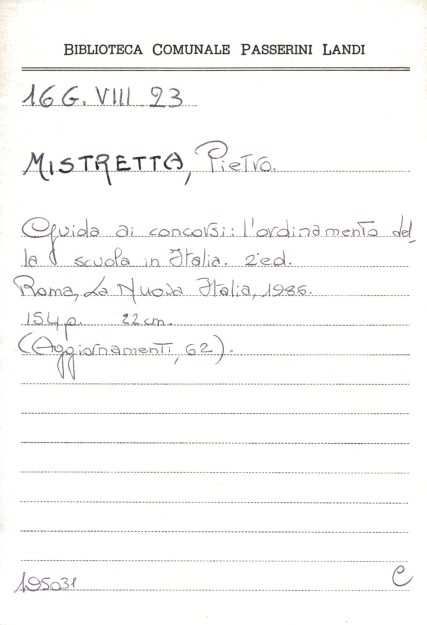 BIBLIOTECA COMUNALE PASSERINI LANDI
16 G. VIII 23
MISTRETTA, Pietro.
Guida ai concorsi: l'ordinamento del_
la scuola in Italia. 2ªed.
Roma, La Nuova Italia, 1986.
154 p. 22 cm.
(Aggiornamenti, 62).
195031 C